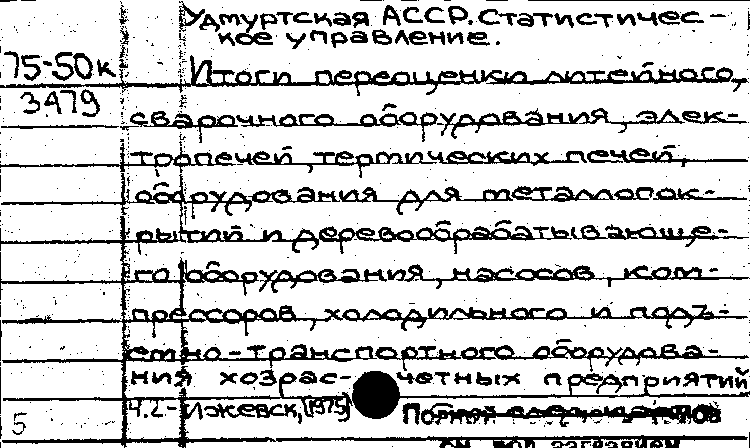 Удмуртская АССР. Статистичес-
кое управление.
75-50к
Итоги переоценки литейного,
3479
сварочного оборудования, элек-
тропечей, термических печей,
оборудования для металлопок-
рытий и деревообрабатывающе-
го оборудования, насосов, ком-
прессоров, холодильного и подъ-
емно-транспортного оборудова-
ния хозрас-четных предприятий
Ч.2- Ижевск, (1975)
5